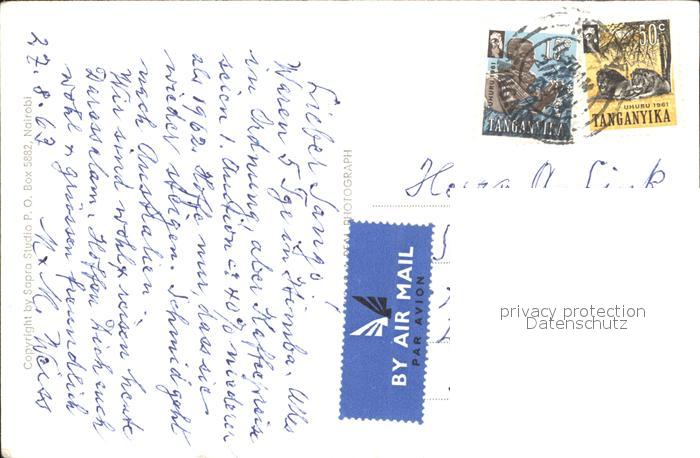 Lieber Sango!
Waren 5 Tge in Itimba. Alles
in Ordnung, aber Kaffeepreise
seien 1. Auction ca 40 % niederer
als 1962. Hoffe nur, dass sie
wieder steigen. Schmid geht
nach Australien
Wir sind wohl & reisen heute
Daressalam. Hoffen Dich auch
wohl & grüssen freundlich
27.8.63 M. & M. Weiss
Copyright by Sapra Studio P. O. Box 5882, Nairobi
REAL PHOTOGRAPH
15c
UHURU 1961
TANGANYIKA
50c
UHURU 1961
TANGANYIKA
Herrn A. Link
BY AIR MAIL
PAR AVION
privacy protection
Datenschutz